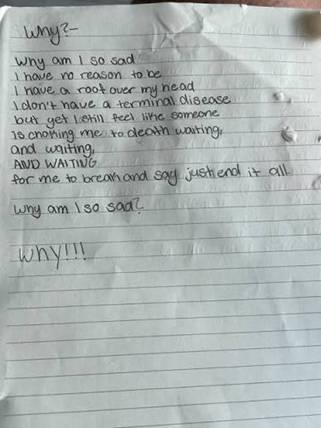 Why?-
Why am I so sad
I have no reason to be
I have a roof over my head
I don't have a terminal disease
but yet I still feel like someone
Is choking me to death waiting,
and waiting,
AND WAITING
for me to break and say just end it all
Why am I so sad?
Why!!!